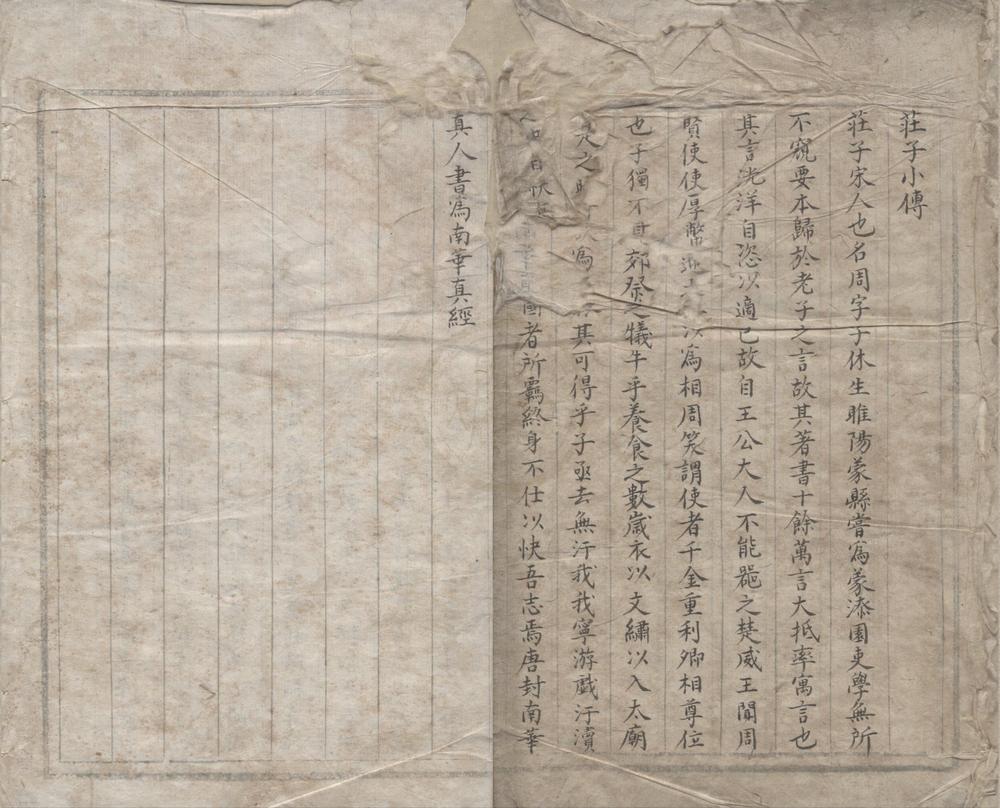 莊子小傳
莊子宋人也名周字子休生睢陽蒙縣嘗爲蒙漆園吏學無所
不窺要本歸於老子之言故其著書十餘萬言大抵率寓言也
其言洸洋自恣以適己故自王公大人不能器之楚威王聞周
賢使使厚幣迎以爲相周笑謂使者千金重利卿相尊位
也子獨不見郊祭之犧牛乎養食之數歲衣以文繡以入太廟
是之時爲其可得乎子亟去無汙我我寧游戲汙瀆
國者所羈終身不仕以快吾志焉唐封南華
真人書爲南華真經